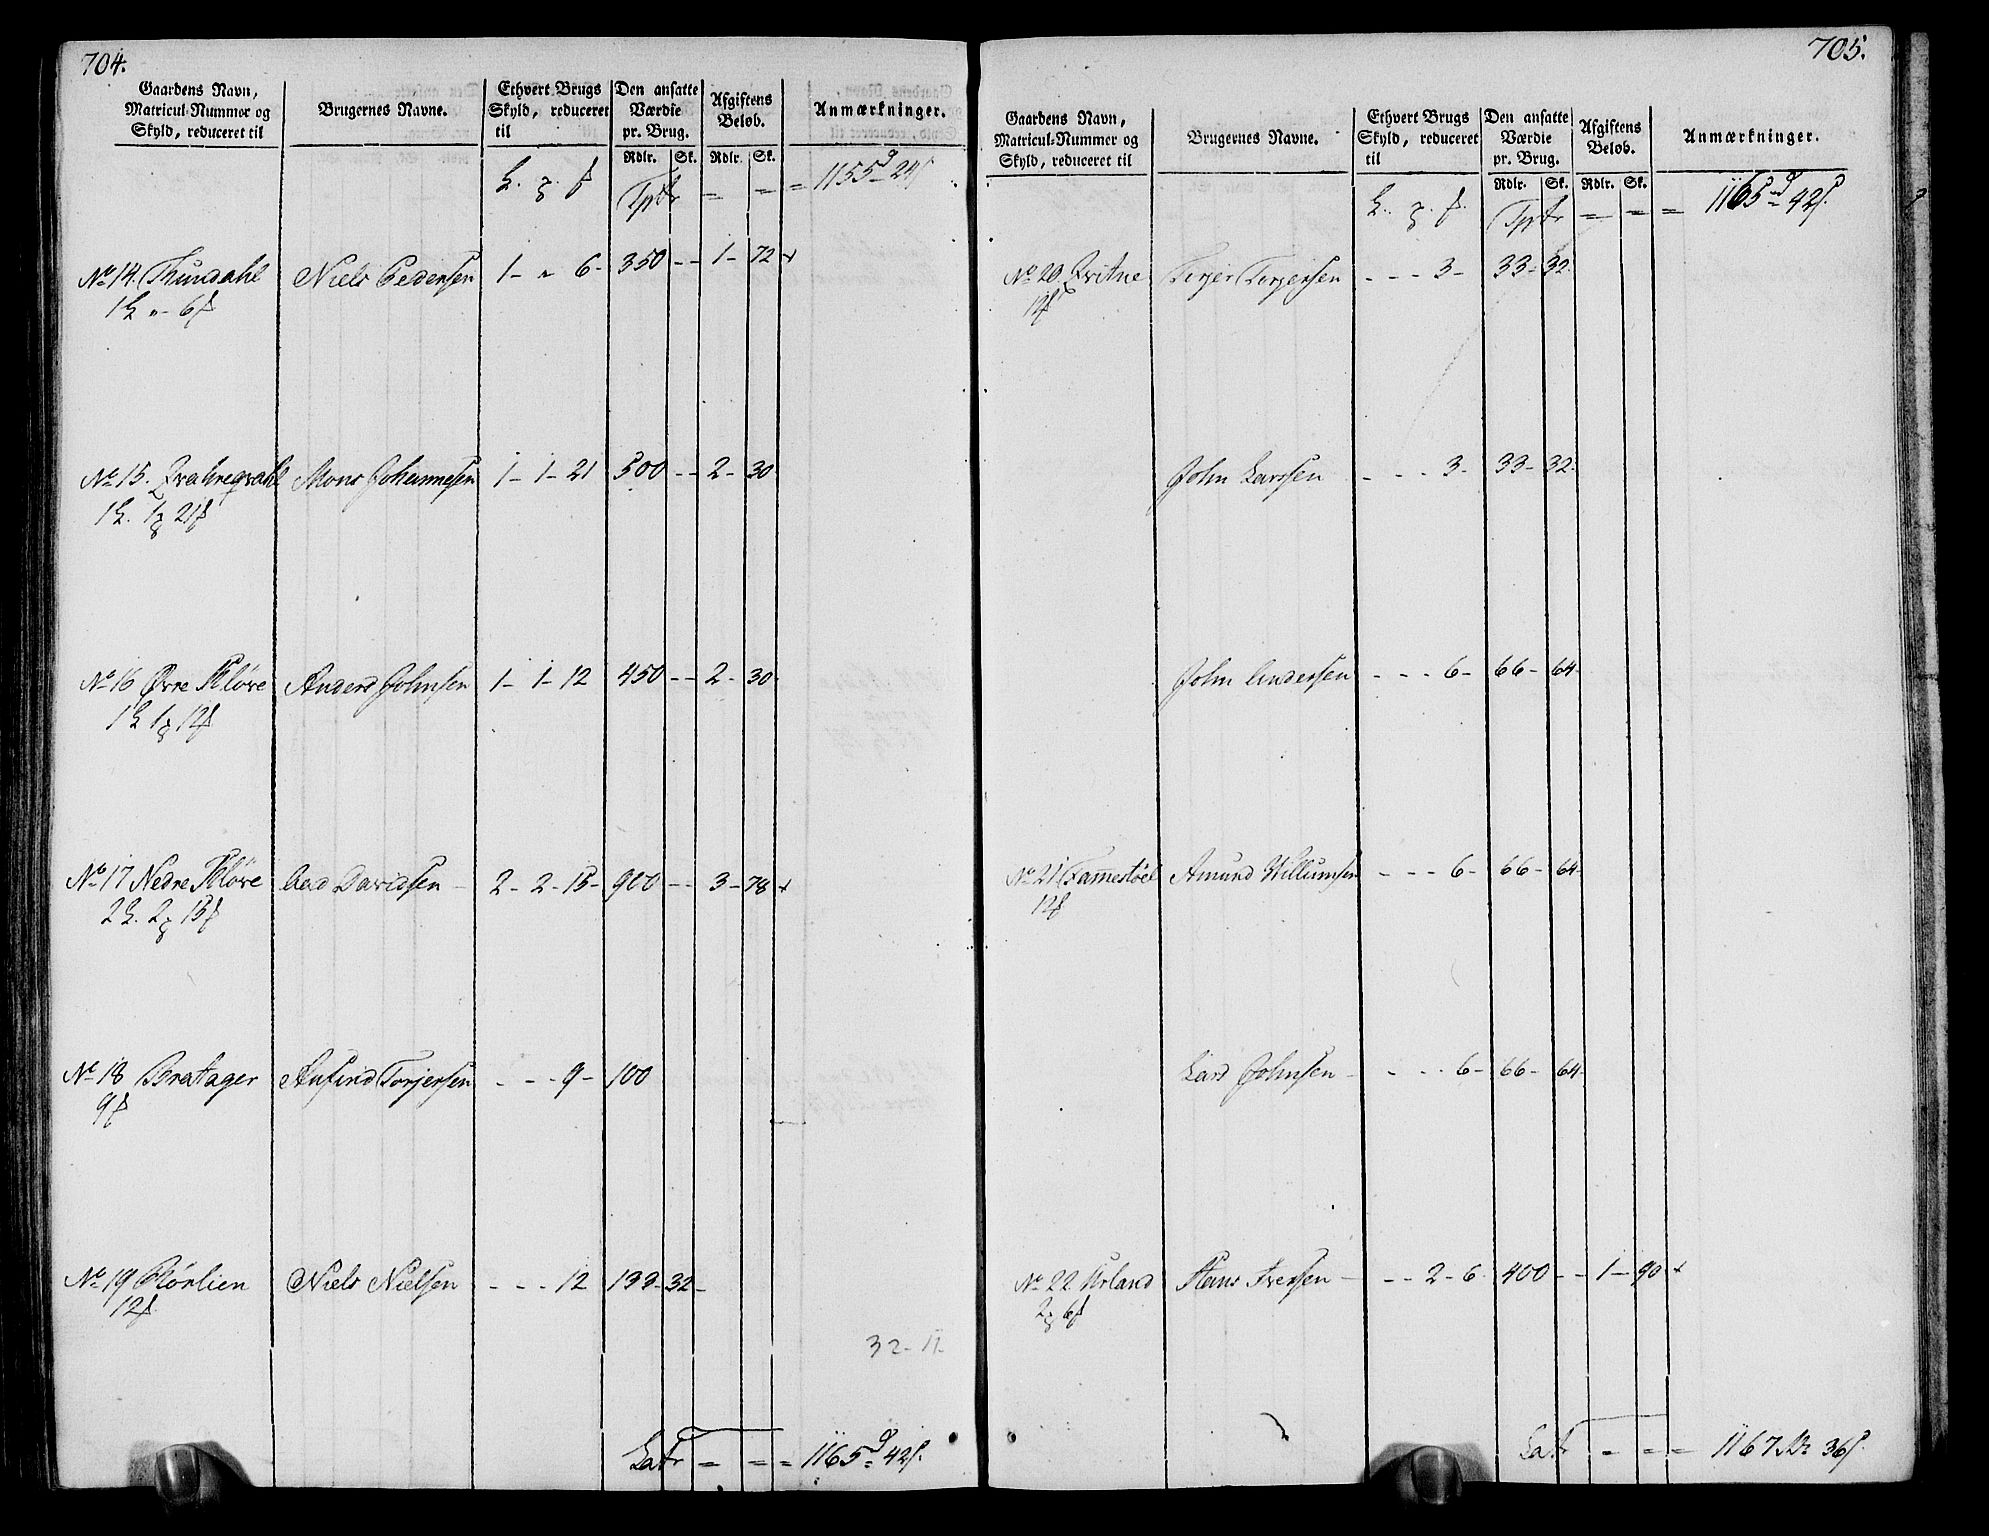 704.
Gaardens Navn, Matricul-Nummer og Skyld, reduceret til
Brugernes Navne.
Ethvert Brugs Skyld, reduceret til
Den ansatte Værdie pr. Brug.
Afgiftens Beløb.
Anmærkninger.
Rdlr. Sk. Rdlr. Sk.
Tptr = = = 1155 24
No 14. Niels Pedersen 1 - " 6 - 350 - - 1 - 72 +
" - 6
No 15. Mons Johannesen 1 - 1 - 21 500 - - 2 - 30
1 21
No 16 Øvre Kløve Anders Johnsen 1 - 1 - 12 450 - - 2 - 30
1 1 12
No 17 Nedre Kløve Davidsen - 2 - 2 - 15 - 900 - - 3 - 78 +
2 2 15
No 18 Bratager Anfind Torjersen - - - 9 - 100
9
No 19 Niels Nielsen - - - 12 133 - 32 -
12
32 - 11
Latr = = = 1165 42
705.
Gaardens Navn, Matricul-Nummer og Skyld, reduceret til
Brugernes Navne.
Ethvert Brugs Skyld, reduceret til
Den ansatte Værdie pr. Brug.
Afgiftens Beløb.
Anmærkninger.
Rdlr. Sk. Rdlr. Sk.
Tptr = = = 1165 42
No 20 Qvitne Torjer Torjersen - - - 3 - 33 - 32
12
John Larssen - - - 3 - 33 - 32
John Andersen - - - 6 - 66 - 64
No 21 Amund Willumsen - - - 6 - 66 - 64
12
Lars Johnsen - - - - 6 - 66 - 64
No 22 Urland Hans Iversen - - - 2 - 6 400 - - 1 - 90 +
2 6
Latr = = = 1167 36